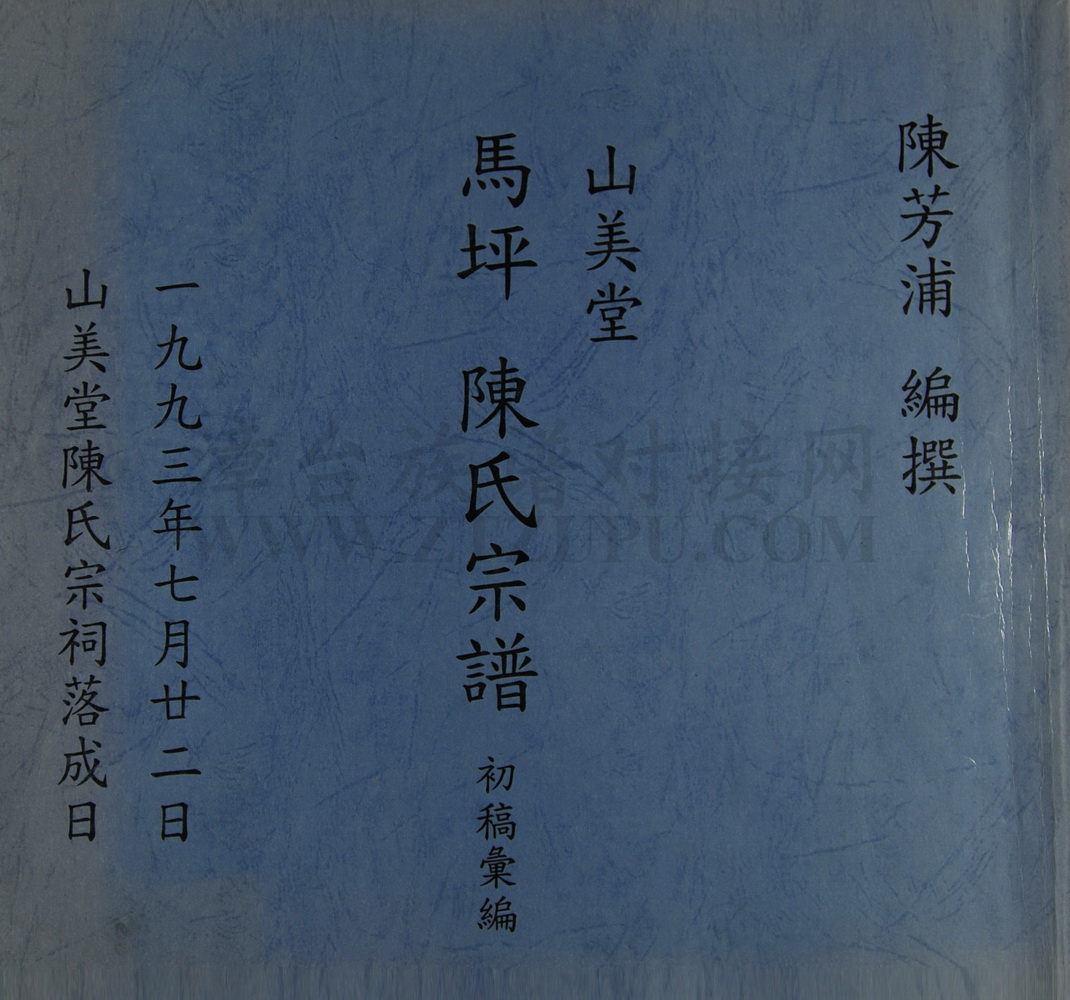 陳芳浦 編撰
山美堂
馬坪 陳氏宗譜 初稿彙編
一九九三年七月廿二日
山美堂陳氏宗祠落成日
漳台族譜对接网
WWW.ZTZUPU.COM